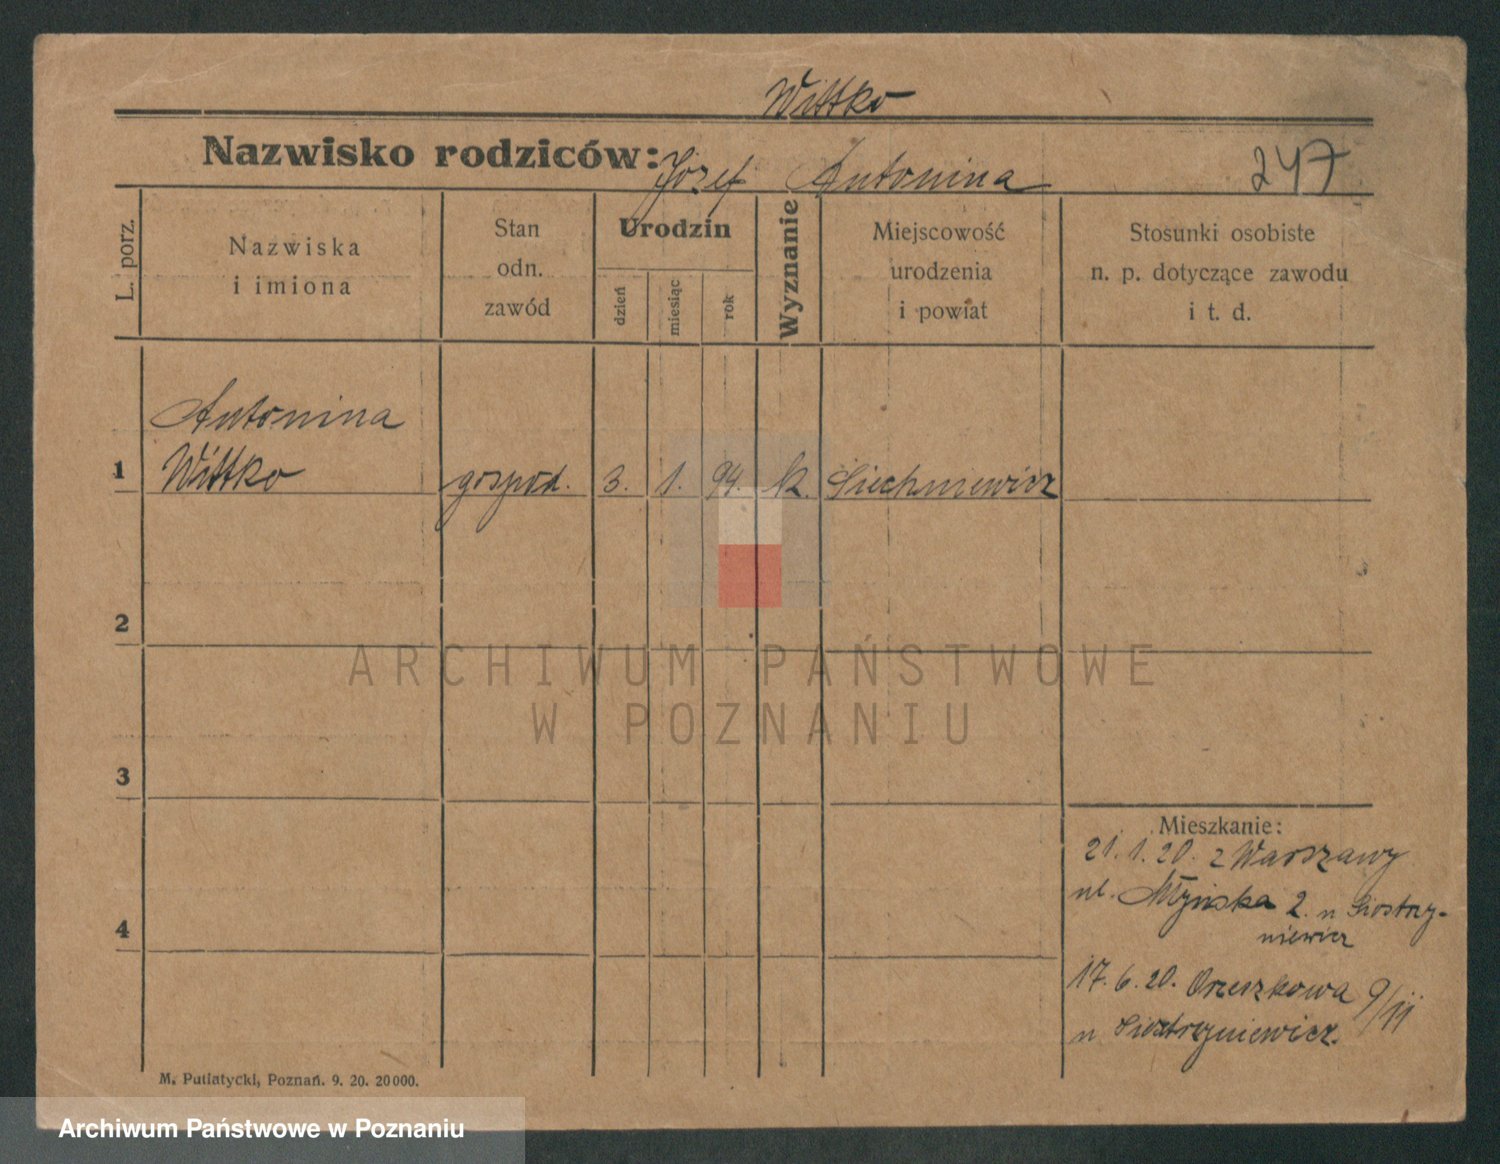 Wittko
Nazwisko rodziców: Józef Antonina 247
L. porz.
Nazwiska
i imiona
Stan
odn.
zawód
Urodzin
dzień
miesiąc
rok
Wyznanie
Miejscowość
urodzenia
i powiat
Stosunki osobiste
n. p. dotyczące zawodu
i t. d.
Antonina
1 Wittko gospod. 3. 1. 94. k. Siechniewicz
2
ARCHIWUM PAŃSTWOWE
W POZNANIU
3
Mieszkanie:
21.1.20. z Warszawy
ul. Młyńska 2. u Siostrzy-
niewicz
4
17.6.20. Orzeszkowa 9/II
u Siostrzyniewicz.
M. Putiatycki, Poznań. 9. 20. 20000.
Archiwum Państwowe w Poznaniu